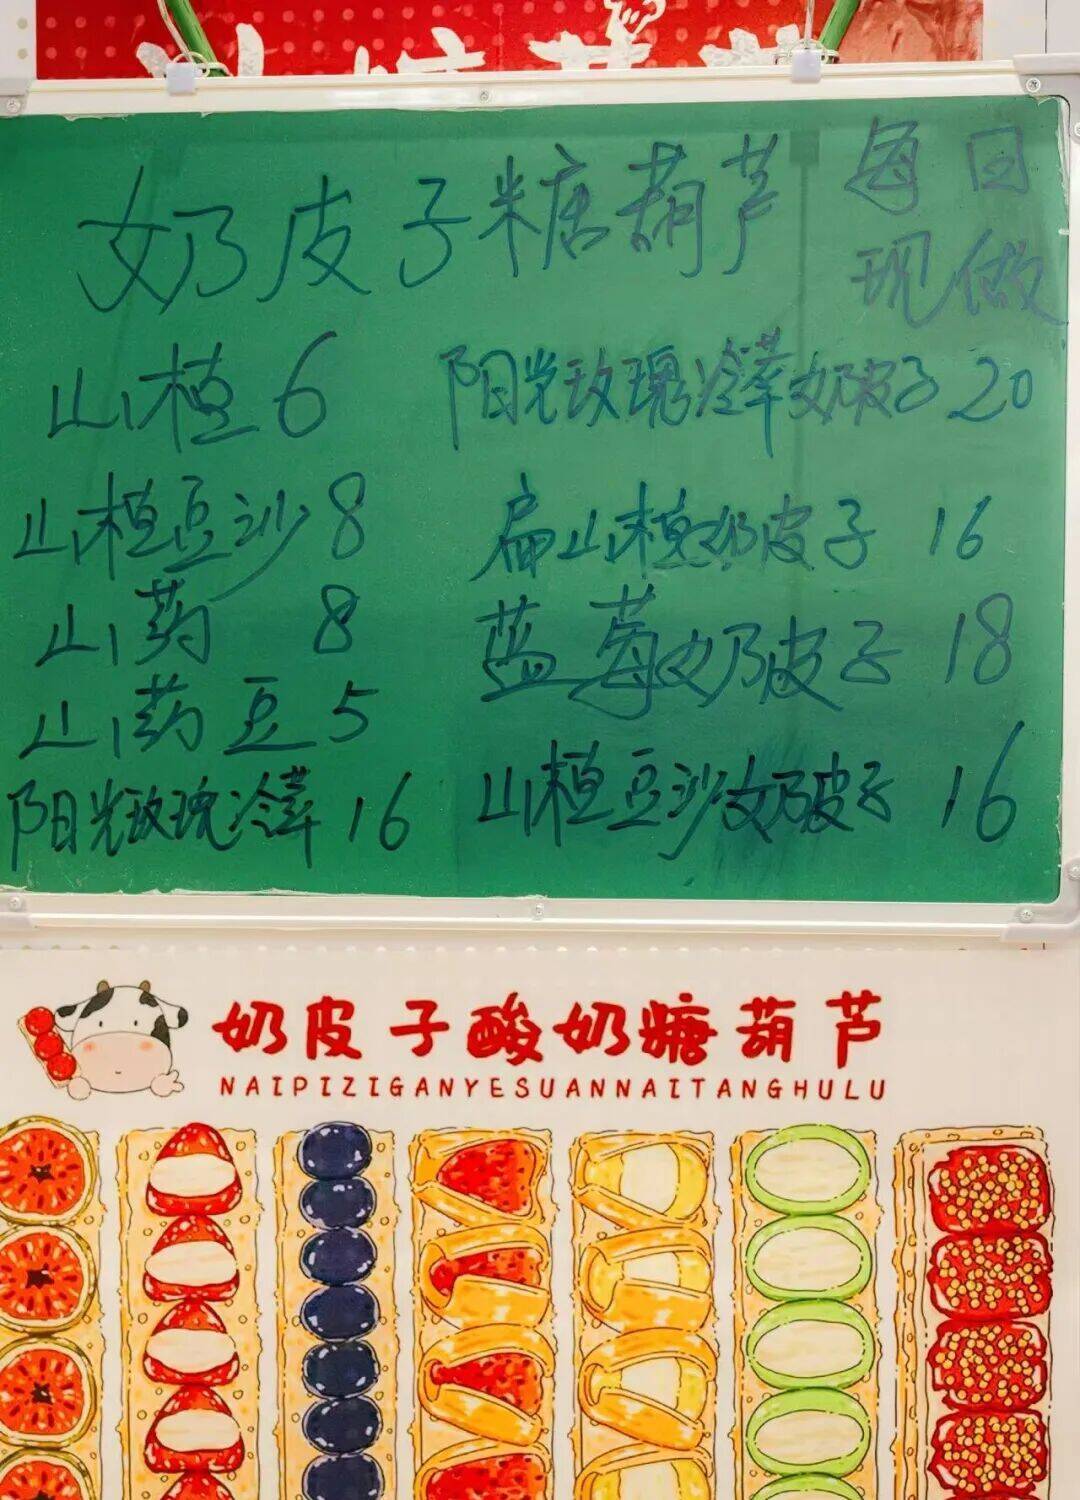 奶皮子糖葫芦
每日
现做
山楂 6
山楂豆沙 8
山药 8
山药豆 5
阳光玫瑰冷萃 16
阳光玫瑰冷萃奶皮子 20
扁山楂奶皮子 16
蓝莓奶皮子 18
山楂豆沙奶皮子 16
奶皮子酸奶糖葫芦
NAIPIZIGANYESUANNAITANGHULU